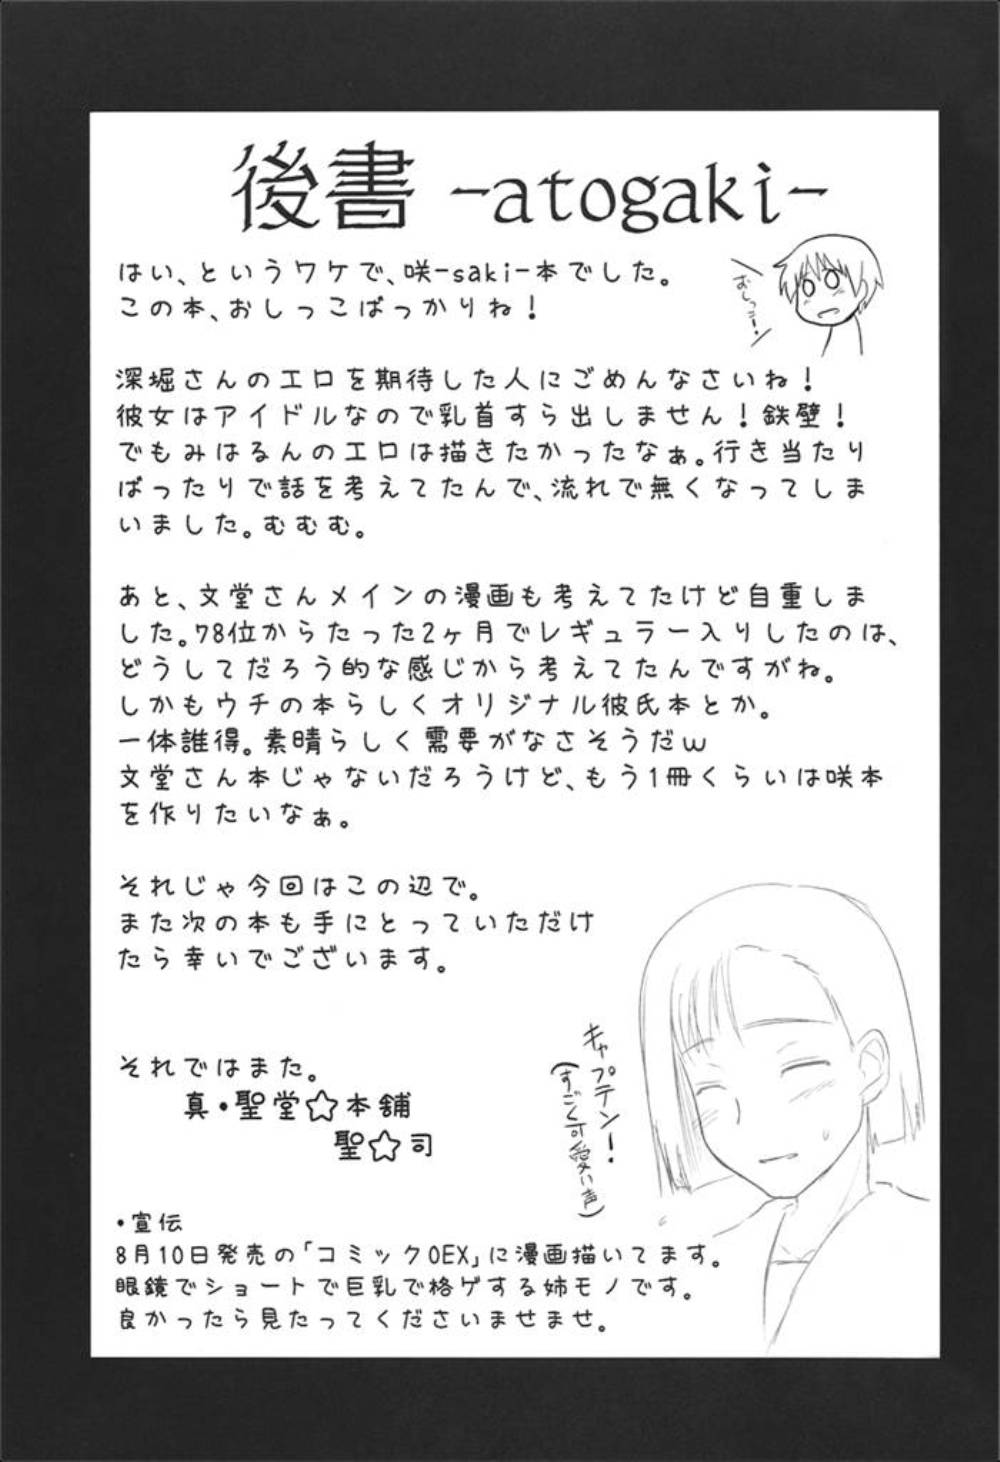 後書 -atogaki-
はい、というワケで、咲-saki-本でした。
この本、おしっこばっかりね！
おしっこ！
深堀さんのエロを期待した人にごめんなさいね！
彼女はアイドルなので乳首すら出しません！鉄壁！
でもみはるんのエロは描きたかったなぁ。行き当たり
ばったりで話を考えてたんで、流れで無くなってしま
いました。むむむ。
あと、文堂さんメインの漫画も考えてたけど自重しま
した。78位からたった2ヶ月でレギュラー入りしたのは、
どうしてだろう的な感じから考えてたんですがね。
しかもウチの本らしくオリジナル彼氏本とか。
一体誰得。素晴らしく需要がなさそうだw
文堂さん本じゃないだろうけど、もう1冊くらいは咲本
を作りたいなぁ。
それじゃ今回はこの辺で。
また次の本も手にとっていただけ
たら幸いでございます。
それではまた。
真・聖堂☆本舗
聖☆司
キャプテン！
(すごく可愛い声)
・宣伝
8月10日発売の「コミック0EX」に漫画描いてます。
眼鏡でショートで巨乳で格ゲする姉モノです。
良かったら見たってくださいませませ。